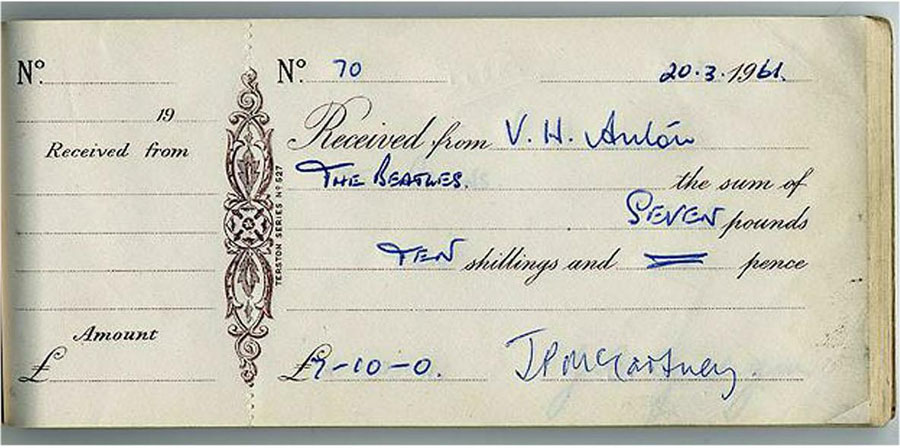 Nº
19
Received from
Amount
£
TERSTON SERIES Nº 527
Nº 70 20·3·1961.
Received from V. H. Anton
THE BEATLES. the sum of
SEVEN pounds
TEN shillings and = pence
£7-10-0. JPMcCartney.